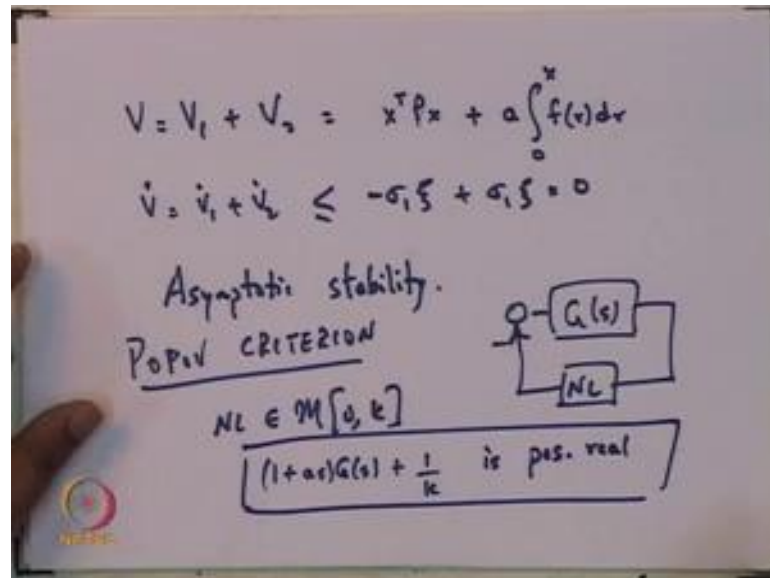 V = V₁ + V₂ = xᵀPx + a∫₀ˣ f(r)dr
V̇ = V̇₁ + V̇₂ ≤ -σ₁ξ + σ₁ξ = 0
Asymptotic stability.
POPOV CRITERION
G(s)
NL
NL ∈ M[0, k]
(1+as)G(s) + 1/k is pos. real
NPTEL